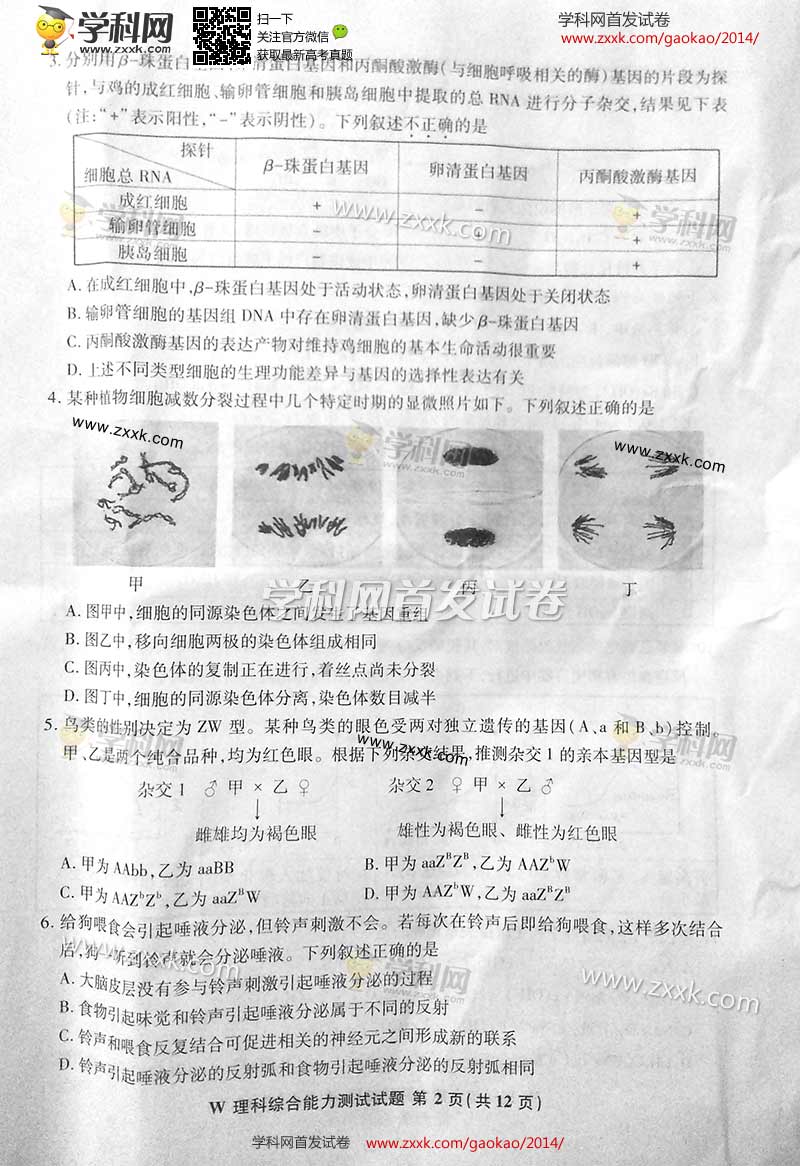 学科网
www.zxxk.com
扫一下
关注官方微信
获取最新高考真题
学科网首发试卷
www.zxxk.com/gaokao/2014/
3. 分别用β-珠蛋白 清蛋白基因和丙酮酸激酶(与细胞呼吸相关的酶)基因的片段为探
针,与鸡的成红细胞、输卵管细胞和胰岛细胞中提取的总 RNA 进行分子杂交,结果见下表
(注:“+”表示阳性,“-”表示阴性)。下列叙述不正确的是
探针
细胞总 RNA β-珠蛋白基因 卵清蛋白基因 丙酮酸激酶基因
成红细胞 + - +
输卵管细胞 - + +
胰岛细胞 - - +
www.zxxk.com
学科网
www.zxxk.com
A. 在成红细胞中,β-珠蛋白基因处于活动状态,卵清蛋白基因处于关闭状态
B. 输卵管细胞的基因组 DNA 中存在卵清蛋白基因,缺少β-珠蛋白基因
C. 丙酮酸激酶基因的表达产物对维持鸡细胞的基本生命活动很重要
D. 上述不同类型细胞的生理功能差异与基因的选择性表达有关
4. 某种植物细胞减数分裂过程中几个特定时期的显微照片如下。下列叙述正确的是
www.zxxk.com
学科网
zxxk.com
www.zxxk.com
甲 乙 丙 丁
学科网首发试卷
A. 图甲中,细胞的同源染色体之间发生了基因重组
B. 图乙中,移向细胞两极的染色体组成相同
C. 图丙中,染色体的复制正在进行,着丝点尚未分裂
D. 图丁中,细胞的同源染色体分离,染色体数目减半
5. 鸟类的性别决定为 ZW 型。某种鸟类的眼色受两对独立遗传的基因(A、a 和 B、b)控制。
甲、乙是两个纯合品种,均为红色眼。根据下列杂交结果,推测杂交 1 的亲本基因型是
www.zxxk.com
杂交 1 ♂ 甲 × 乙 ♀ 杂交 2 ♀ 甲 × 乙 ♂
↓ ↓
雌雄均为褐色眼 雄性为褐色眼、雌性为红色眼
A. 甲为 AAbb,乙为 aaBB B. 甲为 aaZᴮZᴮ,乙为 AAZᵇW
C. 甲为 AAZᵇZᵇ,乙为 aaZᴮW D. 甲为 AAZᵇW,乙为 aaZᴮZᴮ
6. 给狗喂食会引起唾液分泌,但铃声刺激不会。若每次在铃声后即给狗喂食,这样多次结合
后,狗一听到铃声就会分泌唾液。下列叙述正确的是
www.zxxk.com
学科网
zxxk.com
www.zxxk.com
A. 大脑皮层没有参与铃声刺激引起唾液分泌的过程
B. 食物引起味觉和铃声引起唾液分泌属于不同的反射
C. 铃声和喂食反复结合可促进相关的神经元之间形成新的联系
D. 铃声引起唾液分泌的反射弧和食物引起唾液分泌的反射弧相同
W 理科综合能力测试试题 第 2 页(共 12 页)
学科网首发试卷 www.zxxk.com/gaokao/2014/